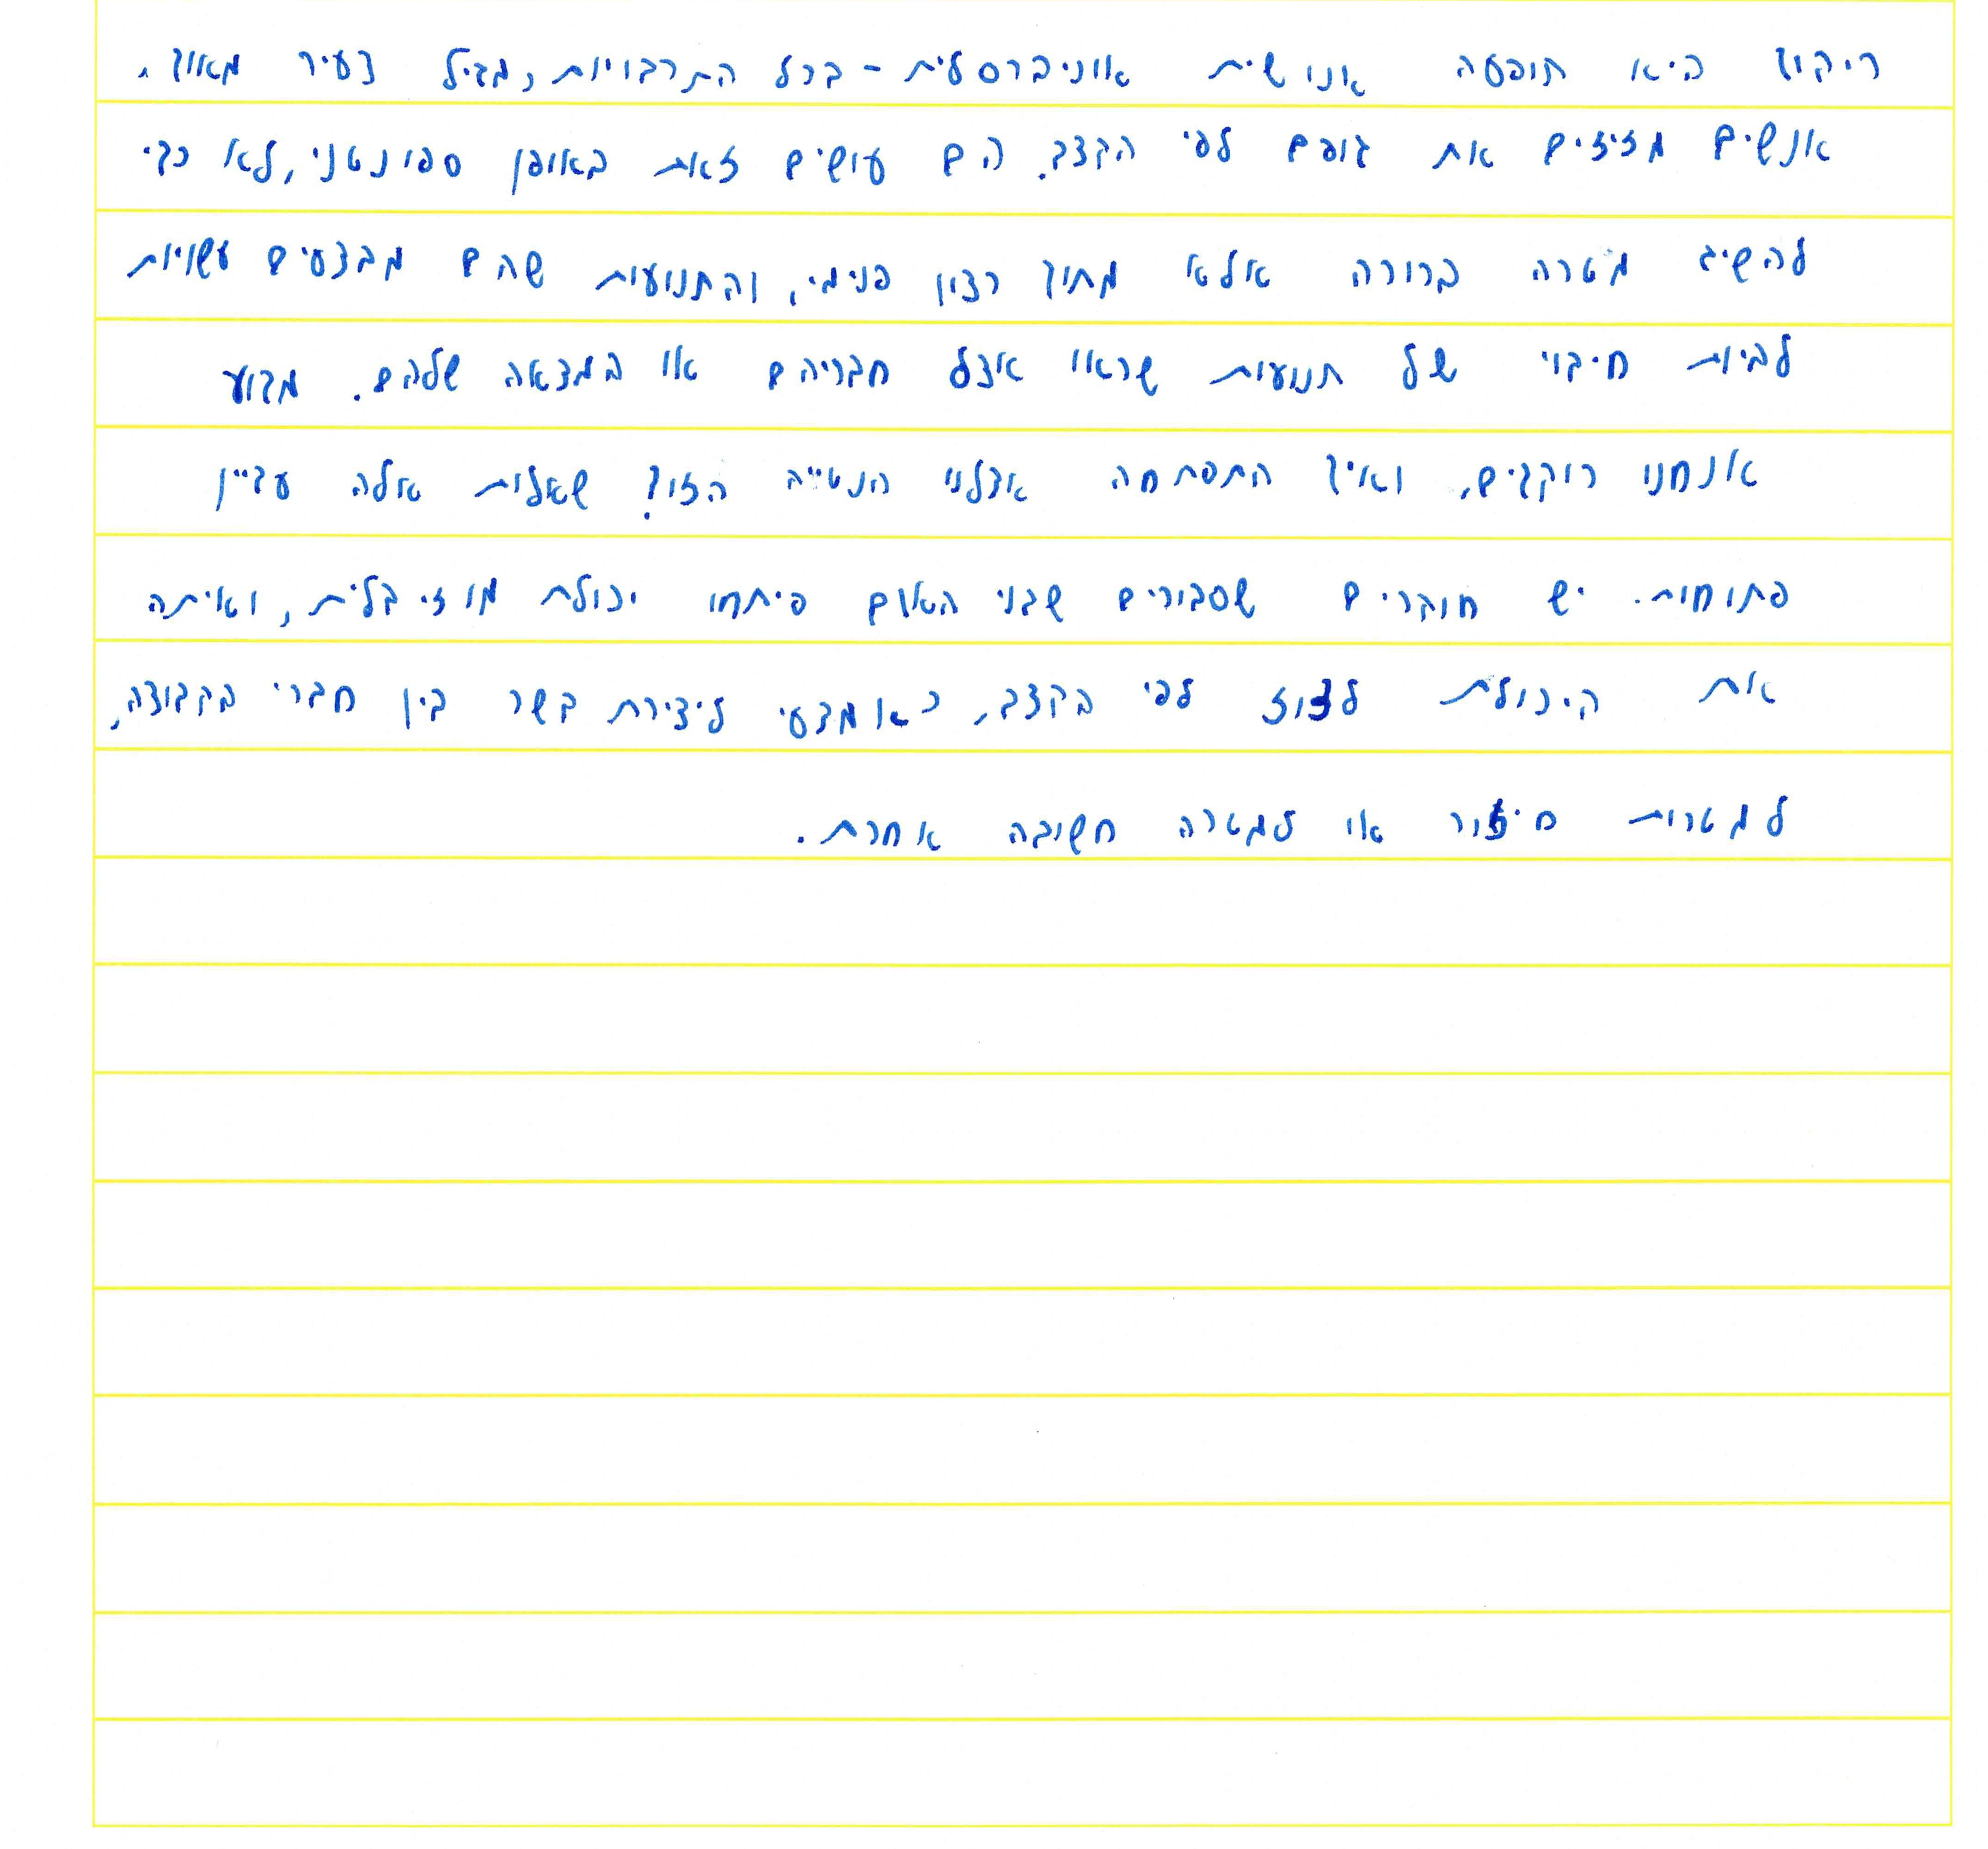 ריקוד היא תופעה אנושית אוניברסלית - בכל התרבויות, מגיל צעיר מאוד,
אנשים מזיזים את גופם לפי הקצב. הם עושים זאת באופן ספונטני, לא כדי
להשיג מטרה ברורה אלא מתוך רצון פנימי, והתנועות שהם מבצעים עשויות
להיות חיקוי של תנועות שראו אצל חבריהם או המצאה שלהם. מדוע
אנחנו רוקדים, ואיך התפתחה אצלנו הנטייה הזו? שאלות אלה עדיין
פתוחות. יש חוקרים שסבורים שבני האדם פיתחו יכולת מוזיקלית, ואיתה
את היכולת לזוז לפי הקצב, כאמצעי ליצירת קשר בין חברי הקבוצה,
למטרות חיזור או למטרה חשובה אחרת.